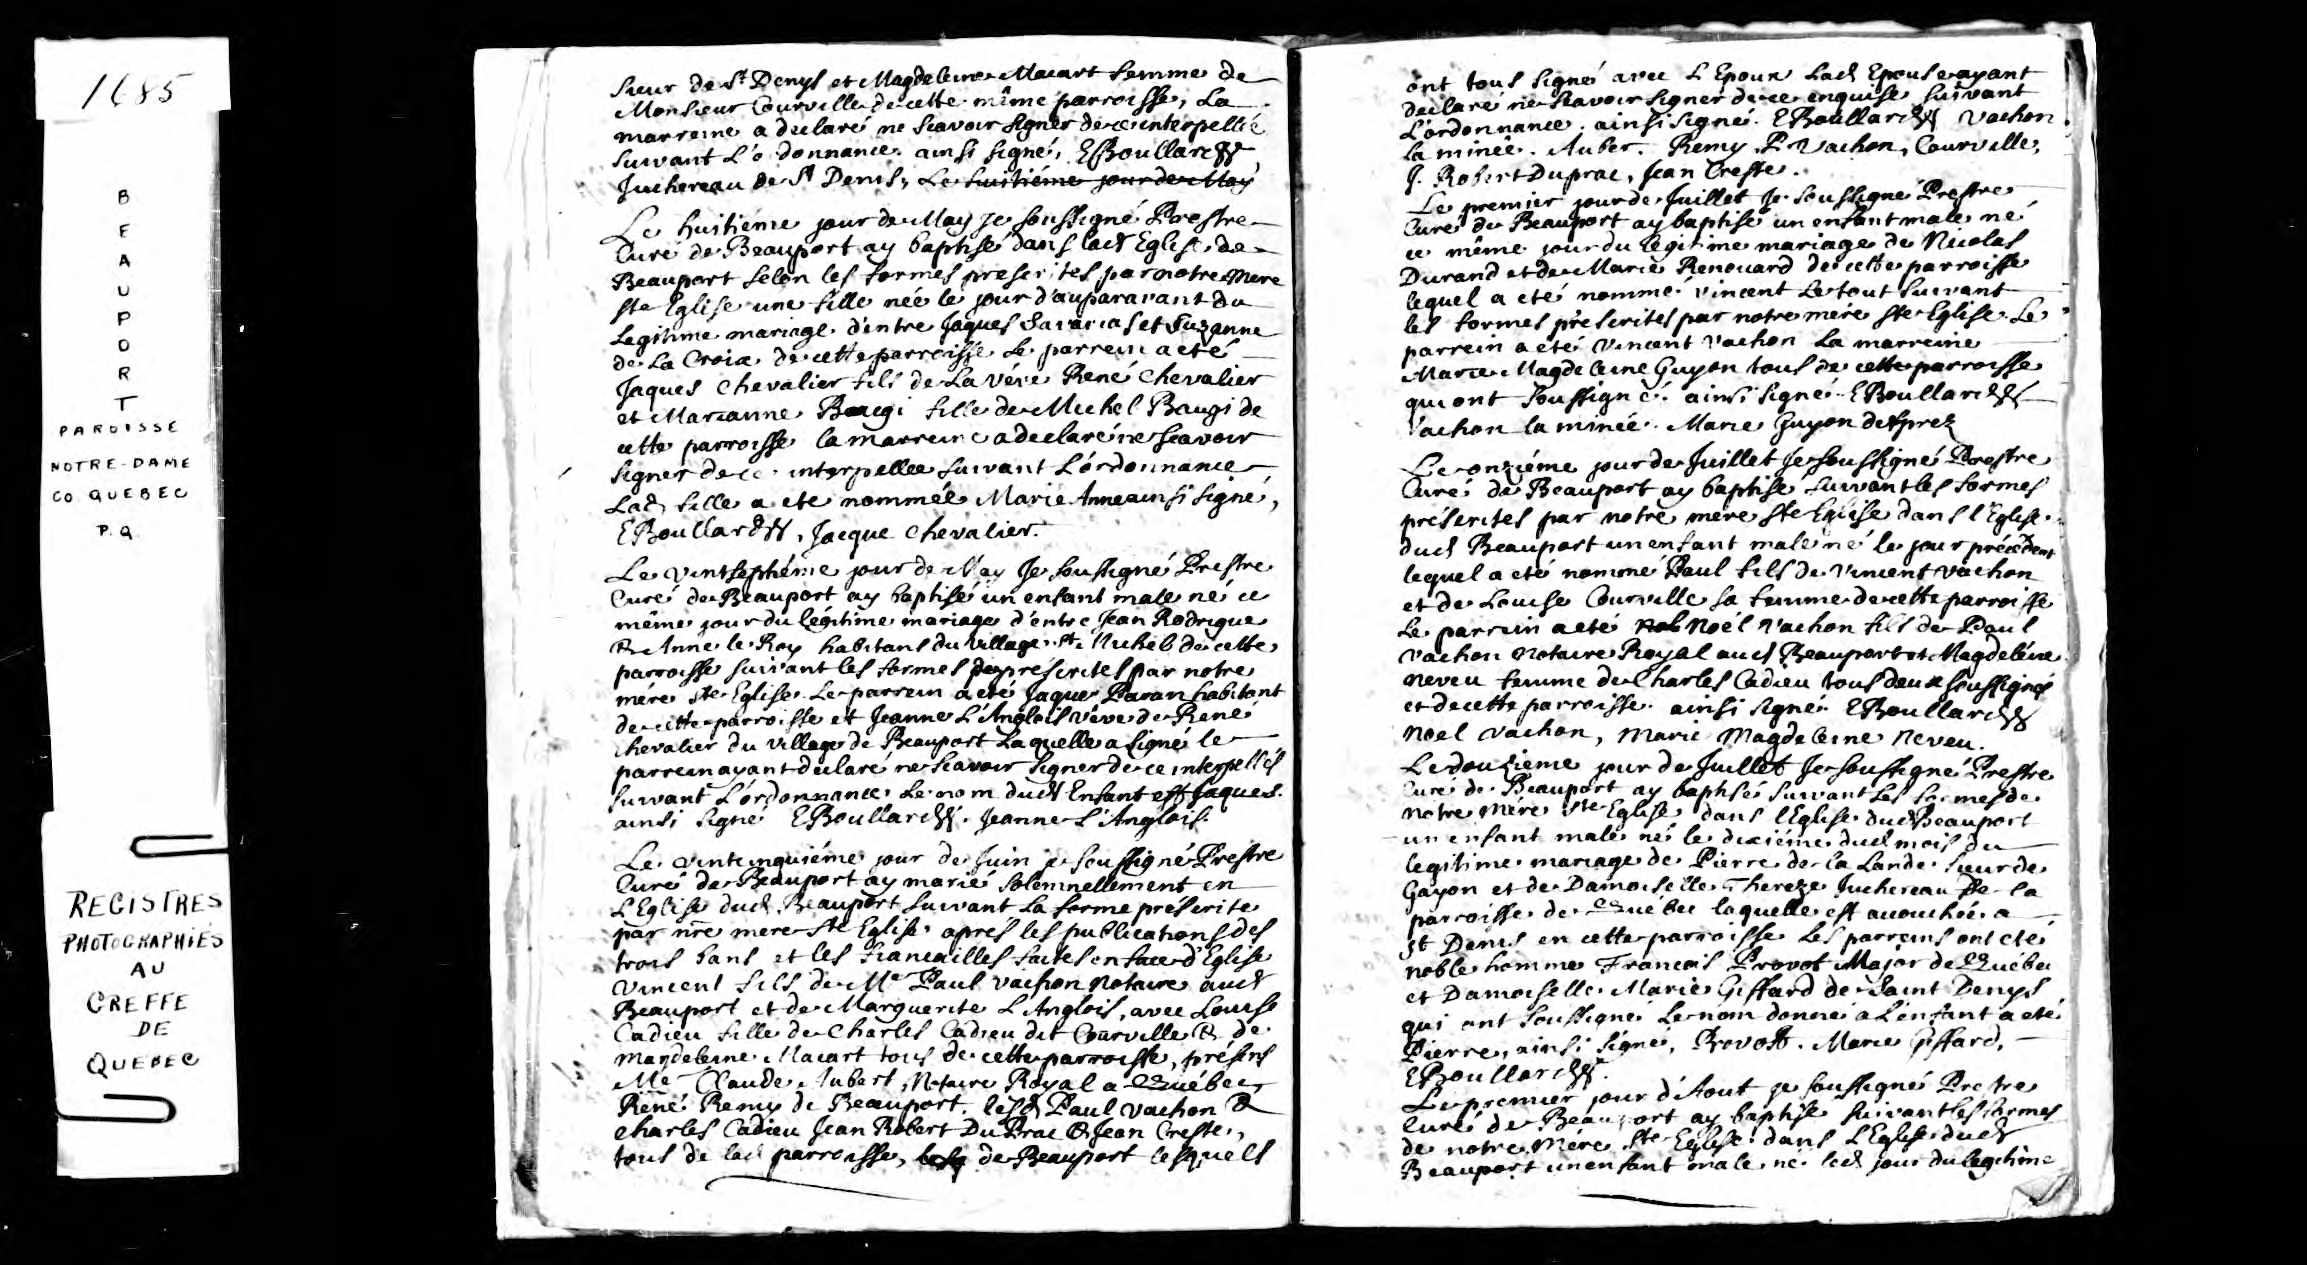 1685
B
E
A
U
P
O
R
T
PAROISSE
NOTRE-DAME
CO. QUEBEC
P.Q.
REGISTRES
PHOTOGRAPHIÉS
AU
GREFFE
DE
QUEBEC
sieur de St Denys et Magdeleine Macart femme de
Monsieur Courville de cette même parroisse, La
marreine a declaré ne scavoir signer de ce interpellée
suivant L'o donnance. ainsi signé, EBoullard
Juchereau de St Denis, Le huitiéme jour de May
Le huitiéme jour de May je soussigné Prestre
Curé de Beauport ay baptisé dans lad Eglise de
Beauport selon les formes prescrites par notre mere
ste Eglise une fille née le jour d'auparavant du
Legitime mariage d'entre Jaques Savarias et Suzanne
de La Croix de cette parroisse le parrein a eté
Jaques chevalier fils de La véve René chevalier
et Marianne Baugi fille de Michel Baugi de
cette parroisse la marreine a declaré ne scavoir
signer de ce interpellee suivant L'ordonnance
Lad fille a ete nommée Marie Anne ainsi signé,
EBoullard, Jacque chevalier.
Le vintseptiéme jour de May Je soussigné Prestre
Curé de Beauport ay baptisé un enfant male né ce
même jour du légitime mariage d'entre Jean Rodrigue
& Anne le Roy habitans du village St Michel de cette
parroisse suivant les formes prescrites par notre
mére ste Eglise. Le parrein a eté Jaque Paran habitant
de cette parroisse et Jeanne L'Anglois véve de René
chevalier du village de Beauport Laquelle a signé le
parrein ayant declaré ne scavoir signer de ce interpellés
suivant L'ordonnance. Le nom dud Enfant est Jaques.
ainsi signé EBoullard. Jeanne L'Anglois.
Le vintcinquiéme jour de Juin je soussigné Prestre
Curé de Beauport ay marié solemnellement en
L'Eglise dud. Beauport suivant la forme préscrite
par nre mere Ste Eglise aprés les publications des
trois bans et les fiancailles faites en face d'Eglise
vincent fils de Me Paul vachon Notaire aud
Beauport et de Marguerite L'Anglois, avec Louise
Cadieu fille de Charles Cadieu dit Courville & de
Magdeleine Macart tous de cette parroisse, présens
Me Claude Aubert, Notaire Royal a Québec
René Remy de Beauport. lesd Paul vachon &
charles Cadieu Jean Robert Du Prac & Jean Creste,
tous de lad parroisse, de Beauport lesquels
ont tous signé avec L'Epoux Lad Epouse ayant
declaré ne scavoir signer de ce enquise suivant
L'ordonnance. ainsi signé. EBoullard vachon
la minée. Auber. Remy P. vachon, Courville,
J. Robert Duprac, Jean Creste.
Le premier jour de Juillet Je soussigné Prestre
Curé de Beauport ay baptisé un enfant male né
ce même jour du légitime mariage de Nicolas
Durand et de Marie Renouard de cette parroisse
lequel a eté nommé vincent Le tout suivant
les formes préscrites par notre mére ste Eglise. Le
parrein a eté vincent vachon La marreine
Marie Magdeleine Guyon tous de cette parroisse
qui ont soussigné. ainsi signé EBoullard
Vachon la minée. Marie Guyon desprez
Le onziéme jour de Juillet Je soussigné Prestre
Curé de Beauport ay baptisé suivant les formes
préscrites par notre mere ste Eglise dans l'Eglise
dud Beauport un enfant male né le jour précédent
lequel a eté nommé Paul fils de vincent vachon
et de Louise Courville sa femme de cette parroisse
Le parrein a eté Noël vachon fils de Paul
vachon Notaire Royal aud Beauport et Magdeléine
neveu femme de Charles Cadieu tous deux soussignés
et de cette parroisse. ainsi signé EBoullard
Noel vachon, Marie Magdeleine neveu.
Le douzieme jour de Juillet Je soussigné Prestre
Curé de Beauport ay baptisé suivant les formes de
notre Mére ste Eglise dans l'Eglise dud Beauport
un enfant male né le dixiéme dud mois du
legitime mariage de Pierre de la Lande sieur de
Gayon et de Damoiselle Thereze Juchereau de la
parroisse de Québec laquelle est acouchée a
St Denis en cette parroisse les parreins ont eté
noble homme Francois Provot Major de Québec
et Damoiselle Marie Giffard de Saint Denys
qui ont soussigné Le nom donné a L'enfant a eté
Pierre, ainsi signé, Provost. Marie Giffard,
EBoullard.
Le premier jour d'Aout je soussigné Prestre
Curé de Beauport ay baptisé suivant les formes
de notre Mére Ste Eglise dans L'Eglise dud
Beauport un enfant male né led jour du legitime